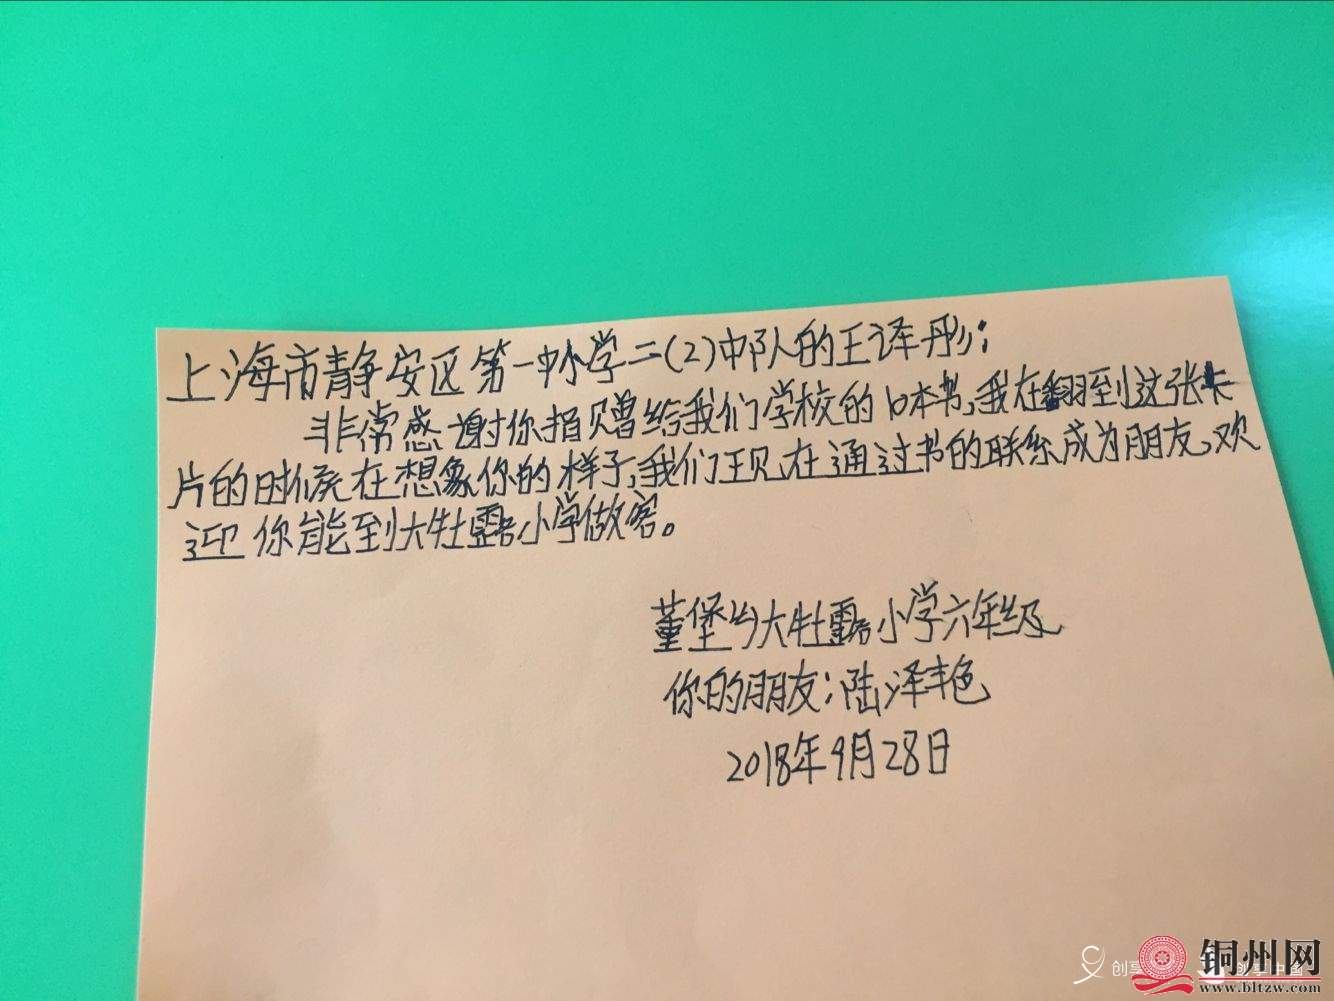 上海市静安区第一中小学二(2)中队的王译彤:
非常感谢你捐赠给我们学校的10本书,我在翻到这张卡
片的时候在想象你的样子,我们现在通过书的联系成为朋友,欢
迎你能到大牡露小学做客。
董堡乡大牡露小学六年级
你的朋友:陆泽艳
2018年9月28日
铜州网
www.bltzw.com